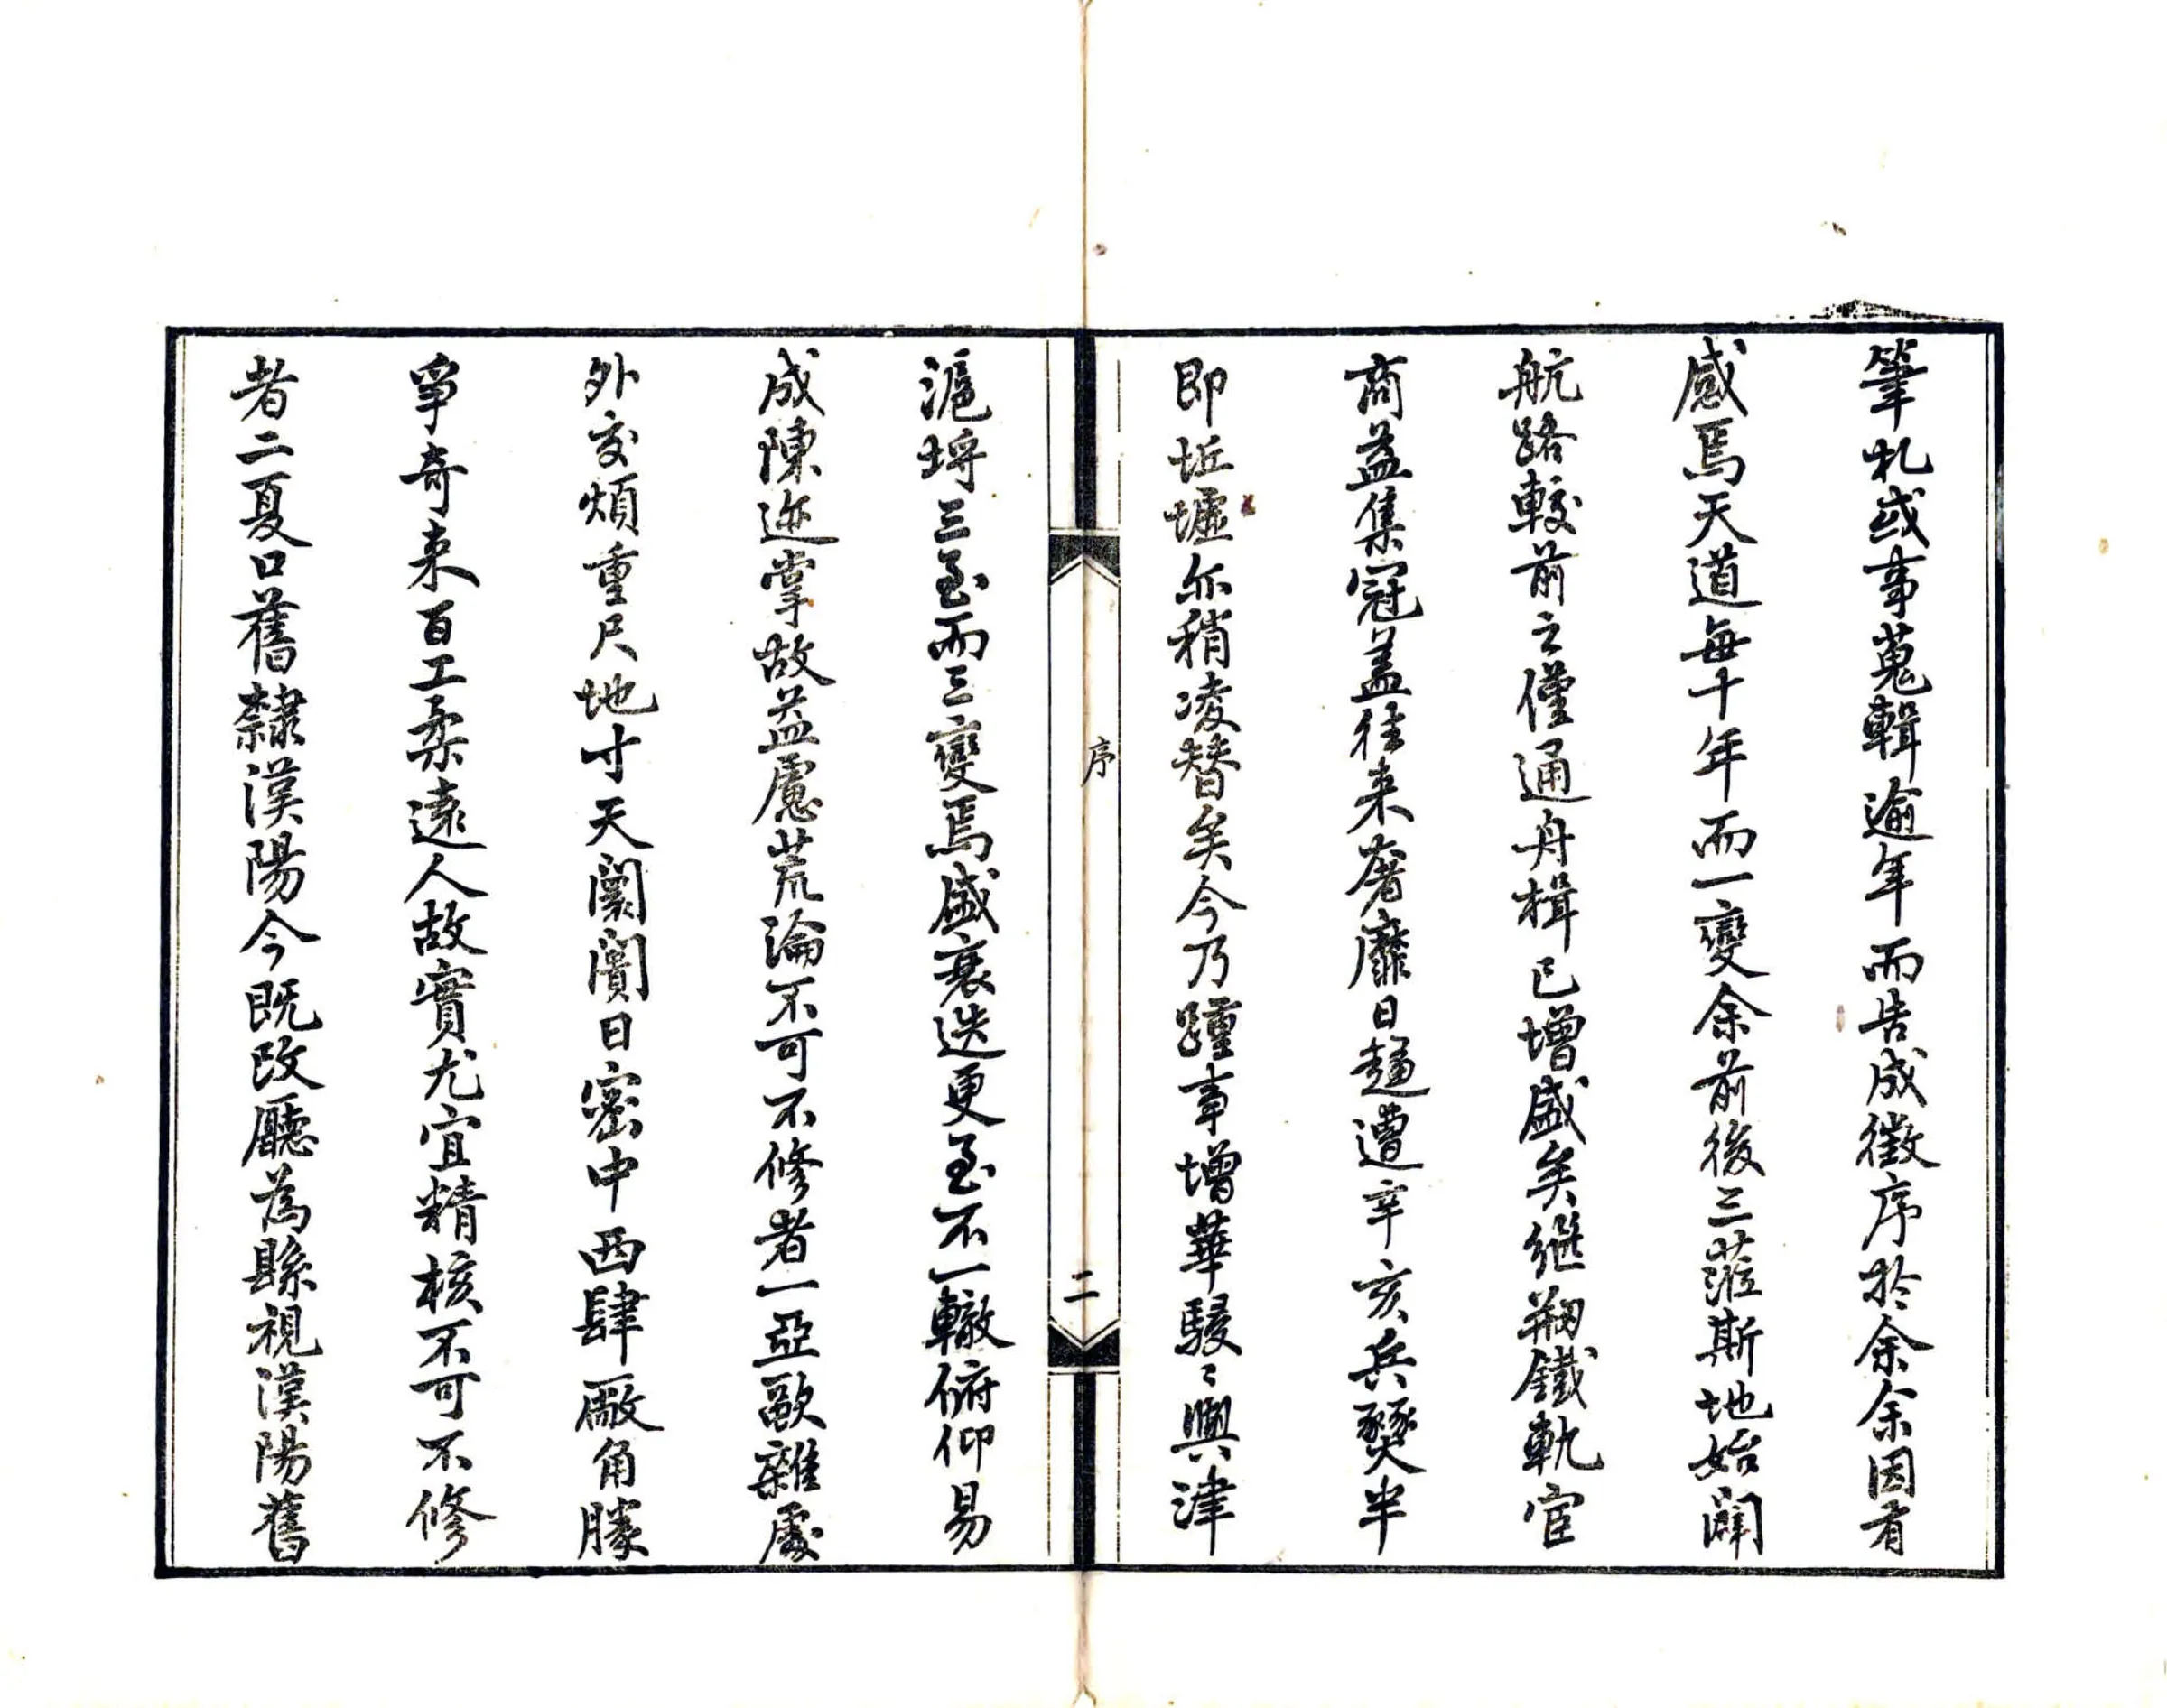 筆札或事蒐輯逾年而告成徵序於余余因有
感焉天道每十年而一變余前後三蒞斯地始闢
航路較前之僅通舟楫已增盛矣繼拥鐵軌官
商益集冠盖往来奢靡日趨遭辛亥兵燹半
即坵墟亦稍凌替矣今乃踵事增華駸〻興津
序
二
滬埒三至而三變焉盛衰迭更至不一轍俯仰易
成陳迹掌故益慮荒淪不可不修者一亞歐雜處
外交煩重尺地寸天闤闠日密中西肆廠角勝
爭奇来百工柔遠人故實尤宜精核不可不修
者二夏口舊隸漢陽今既改廳為縣視漢陽舊